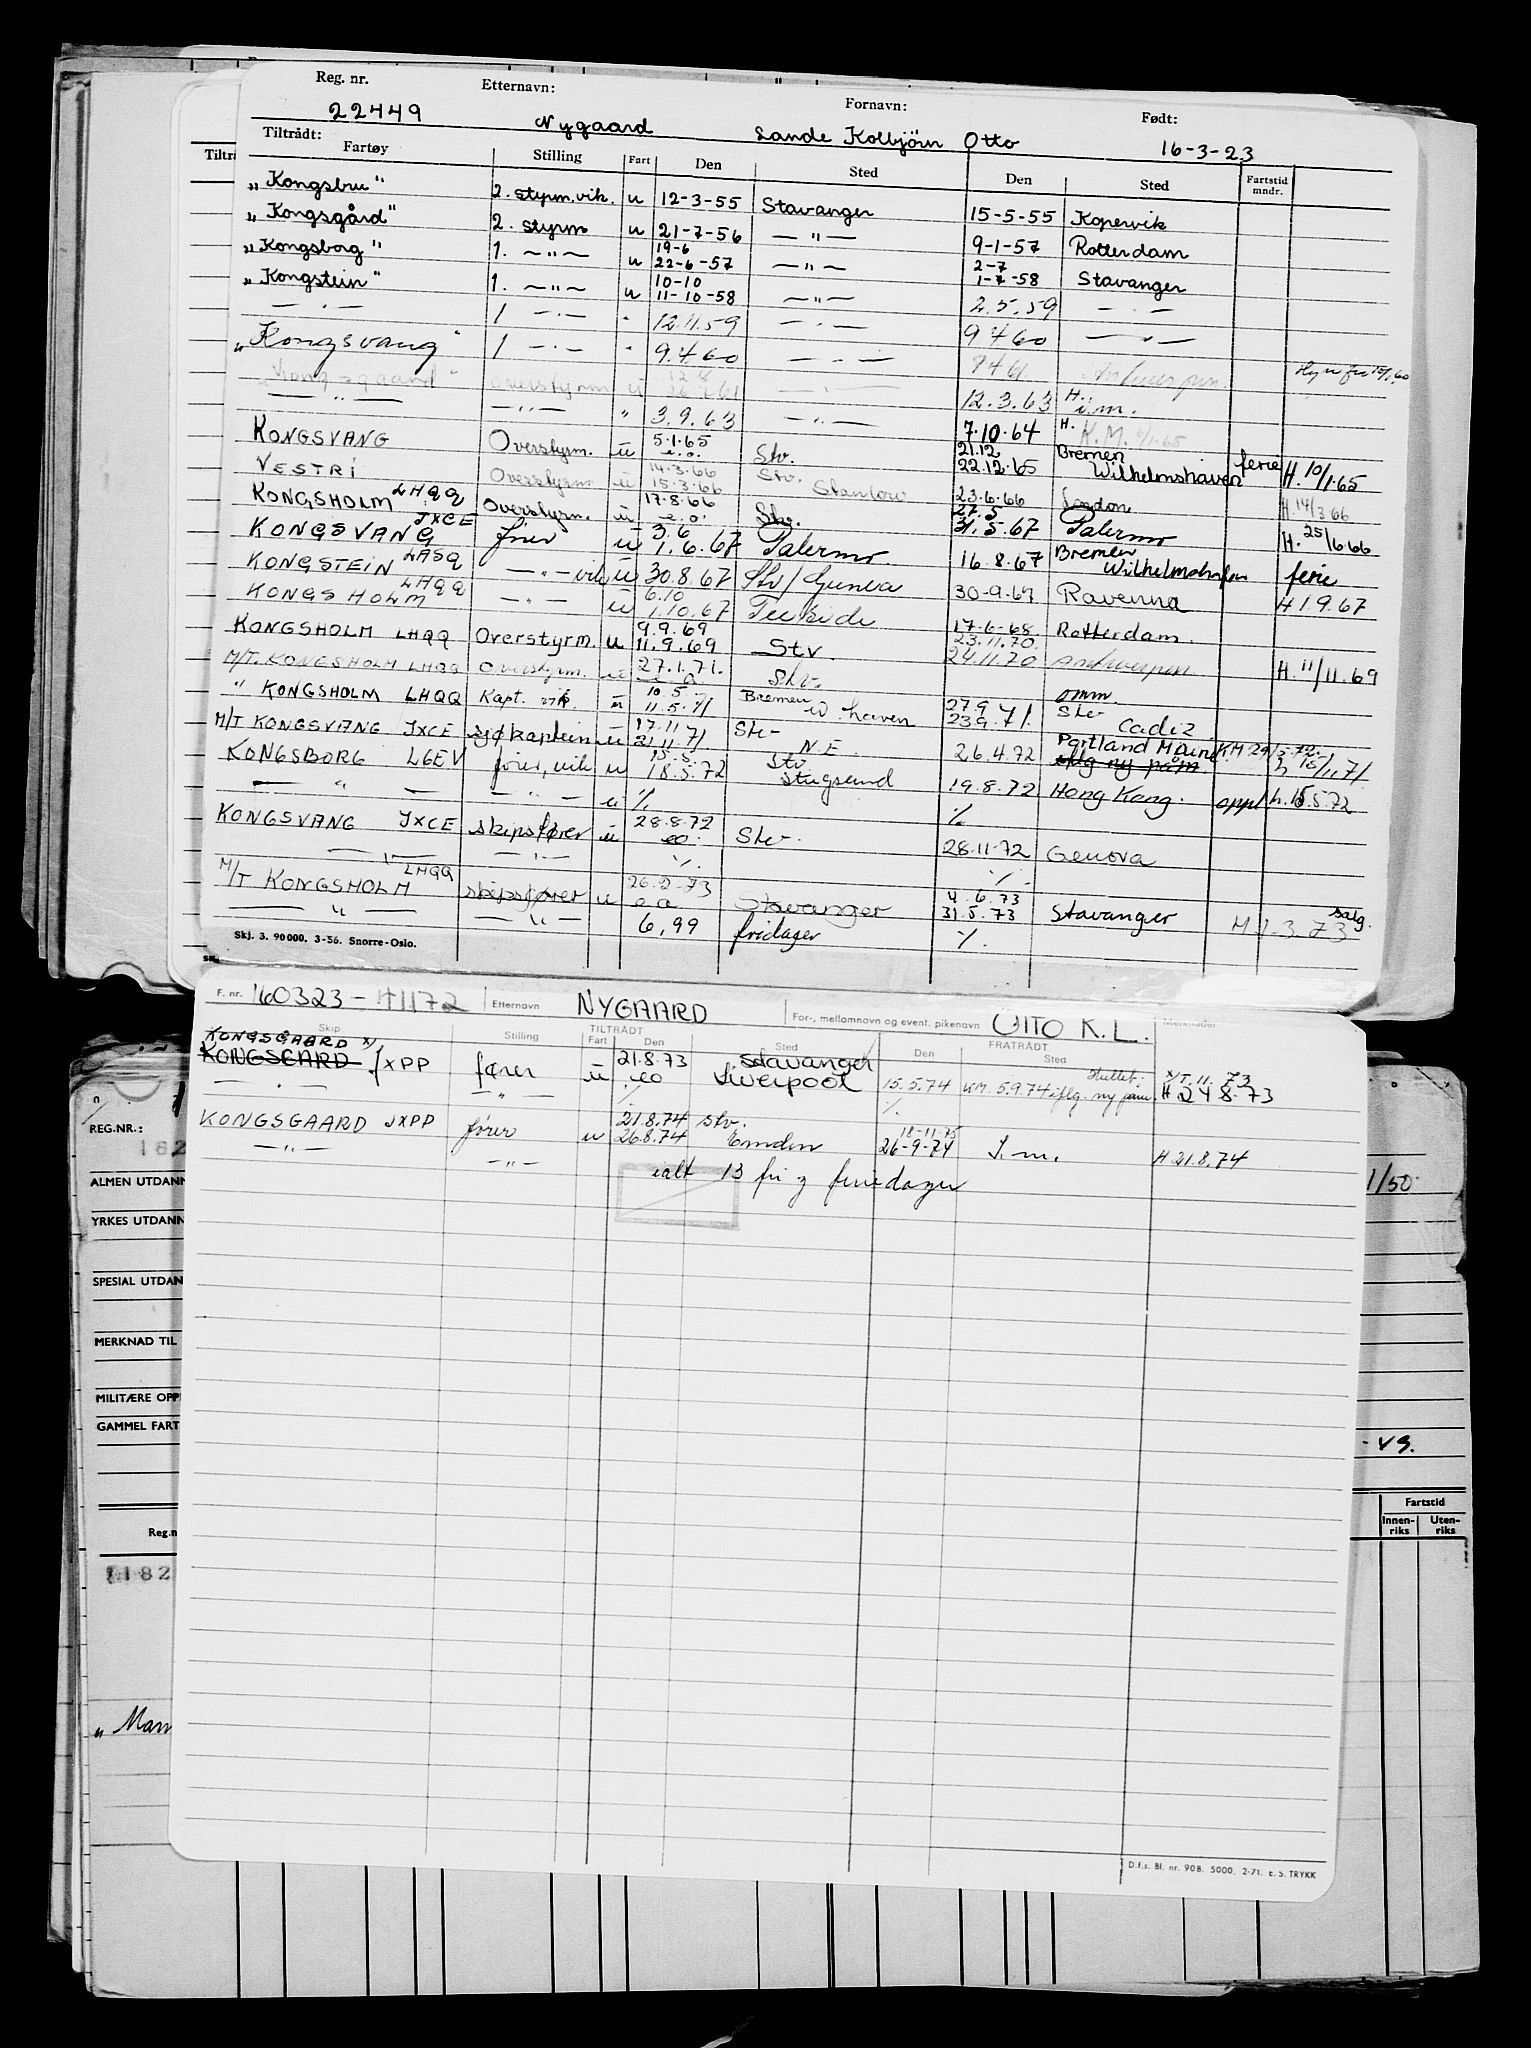 Reg. nr. Etternavn: Fornavn: Født:
22449 Nygaard Sande Kolbjörn Otto 16-3-23
Tiltrådt:
Fartøy Stilling Fart Den Sted Den Sted Fartstid mndr.
„Kongsbru" 2. styrm.vik. u 12-3-55 Stavanger 15-5-55 Kopervik
„Kongsgård" 2. styrm u 21-7-56 — " — 9-1-57 Rotterdam
„Kongsborg" 1. — " — u 19-6 22-6-57 — " — 2-7 1-7-58 Stavanger
„Kongstein" 1. — " — u 10-10 11-10-58 — " — 2.5.59 — " —
— " — 1 — " — " 12.11.59 — " — 9 4 60 — " —
„Kongsvang" 1 — " — " 9.4.60 — " — 9 4 61
„Kongsgaard" overstyrm u 12.3.63 H. i.m.
— " — — " — " 3.9.63 — " — 7.10.64 H. K.M.
KONGSVANG Overstyrm. u 5.1.65 e.o. Stv. 21.12 22.12.65 Bremen Wilhelmshaven ferie H. 10/1.65
VESTRI Overstyrm u 14.3.66 15.3.66 Stv. Stanlow 23.6.66 London. H. 14/3 66
KONGSHOLM LHQQ Overstyrm. u 17.8.66 e.o. Stv. 27.5 31.5.67 Palermo H. 25/6.66
KONGSVANG JXCE fører u 3.6 1.6.67 Palermo 16.8.67 Bremen Wilhelmshafen ferie
KONGSTEIN LASQ — " — vik u 30.8.67 Stv/ 30-9-67 Ravenna H 1.9.67
KONGSHOLM LHQQ — " — u 6.10 1.10.67 17-6-68 Rotterdam.
KONGSHOLM LHQQ Overstyrm. u 9.9.69 11.9.69 Stv. 23.11.70 24.11.70 Antwerpen H. 11/11.69
M/T. KONGSHOLM LHQQ Overstyrm. u 27.1.71. e.a. Stv. omm.
" KONGSHOLM LHQQ Kapt. vik. u 10.5 11.5.71 Bremen W. haven 27.9 23.9.71. Stv Cadiz
M/T KONGSVANG JXCE sjøkaptein u 17.11 21.11 71. Stv N.E. 26.4.72 Portland Maine KM 29/5.72. iflg ny påm h 15/11.71
KONGSBORG LGEV fører, vik u 15.5. 18.5.72 Stv Stugsund 19.8.72 Hong Kong. oppl h. 15.5.72
— " — — " — u %. %
KONGSVANG JXCE skipsfører u 28.8.72 eo. Stv. 28.11.72 Genova
— " — — " — %. %
M/T KONGSHOLM LHQQ skipsfører u 26.2.73 e.a Stavanger 4.6.73 31.5.73 Stavanger M 1.3.73 salg.
— " — — " — 6,99 fridager %.
Skj. 3. 90000. 3-56. Snorre-Oslo.
F. nr. 160323-41172 Etternavn NYGAARD For-, mellomnavn og event. pikenavn OTTO K.L. Merknader
Skip Stilling TILTRÅDT Fart Den Sted FRATRÅDT Den Sted
KONGSGAARD x)
KONGSGARD JXPP fører u 21.8.73 eo Stavanger Liverpool 15.5.74 KM. 5.9.74 iflg. ny påm. x/T. 11. 73 H 24 8.73
— " — — " — %. %.
KONGSGAARD JXPP fører u 21.8.74 26.8.74 stv. Emden 18-11-75 26-9-74 I.m. H 21.8.74
— " — — " — ialt 13 fri og feriedager
REG.NR.:
182
ALMEN UTDANN 1/50.
YRKES UTDANN
SPESIAL UTDAN
MERKNAD TIL
MILITÆRE OPP
GAMMEL FART - vs.
Fartstid
Reg.n Innen-riks Uten-riks
1182
„Man
D.f.s. Bl. nr. 908. 5000. 2-71. E. S. TRYKK